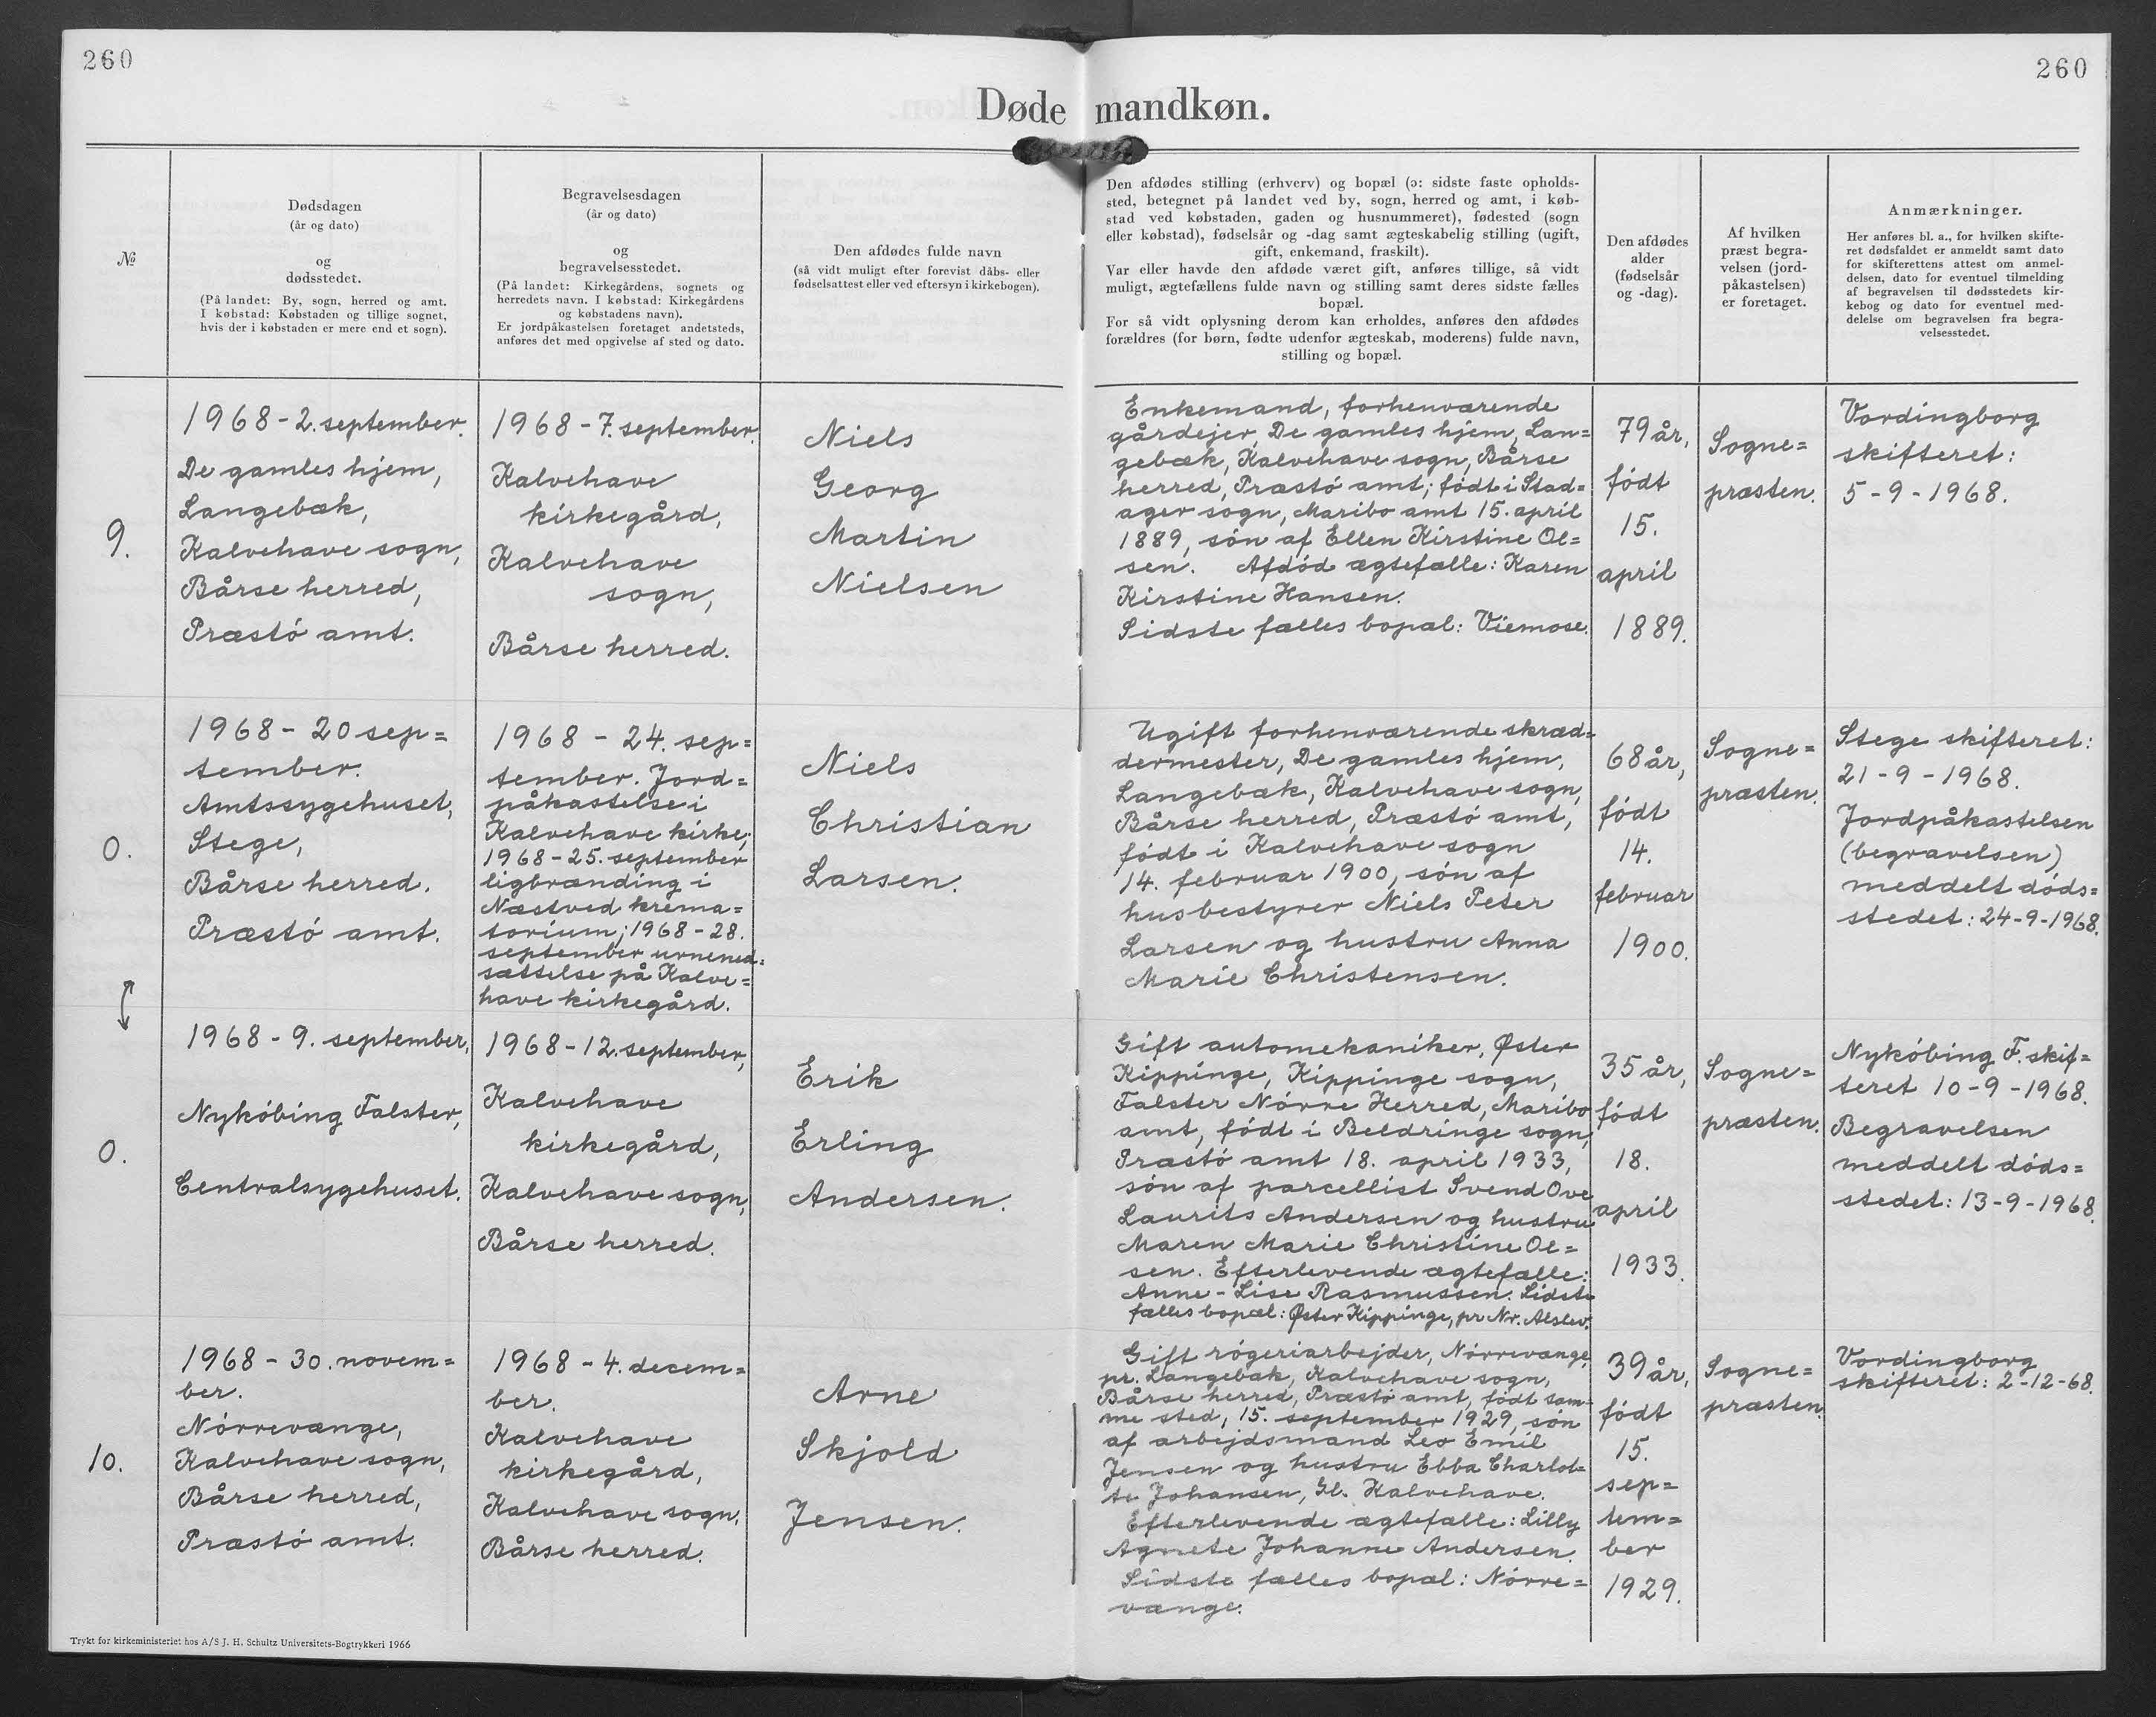 260
260
Døde mandkøn.
№
Dødsdagen
(år og dato)
og
dødsstedet.
(På landet: By, sogn, herred og amt.
I købstad: Købstaden og tillige sognet,
hvis der i købstaden er mere end et sogn).
Begravelsesdagen
(år og dato)
og
begravelsesstedet.
(På landet: Kirkegårdens, sognets og
herredets navn. I købstad: Kirkegårdens
og købstadens navn).
Er jordpåkastelsen foretaget andetsteds,
anføres det med opgivelse af sted og dato.
Den afdødes fulde navn
(så vidt muligt efter forevist dåbs- eller
fødselsattest eller ved eftersyn i kirkebogen).
Den afdødes stilling (erhverv) og bopæl (ɔ: sidste faste opholds-
sted, betegnet på landet ved by, sogn, herred og amt, i køb-
stad ved købstaden, gaden og husnummeret), fødested (sogn
eller købstad), fødselsår og -dag samt ægteskabelig stilling (ugift,
gift, enkemand, fraskilt).
Var eller havde den afdøde været gift, anføres tillige, så vidt
muligt, ægtefællens fulde navn og stilling samt deres sidste fælles
bopæl.
For så vidt oplysning derom kan erholdes, anføres den afdødes
forældres (for børn, fødte udenfor ægteskab, moderens) fulde navn,
stilling og bopæl.
Den afdødes
alder
(fødselsår
og -dag).
Af hvilken
præst begra-
velsen (jord-
påkastelsen)
er foretaget.
Anmærkninger.
Her anføres bl. a., for hvilken skifte-
ret dødsfaldet er anmeldt samt dato
for skifterettens attest om anmel-
delsen, dato for eventuel tilmelding
af begravelsen til dødsstedets kir-
kebog og dato for eventuel med-
delelse om begravelsen fra begra-
velsesstedet.
9.
1968-2. september.
De gamles hjem,
Langebæk,
Kalvehave sogn,
Bårse herred,
Præstø amt.
1968-7. september.
Kalvehave
kirkegård,
Kalvehave
sogn,
Bårse herred.
Niels
Georg
Martin
Nielsen
Enkemand, forhenværende
gårdejer, De gamles hjem, Lan=
gebæk, Kalvehave sogn, Bårse
herred, Præstø amt; født i Stad=
ager sogn, Maribo amt 15. april
1889, søn af Ellen Kirstine Ol=
sen. Afdød ægtefælle: Karen
Kirstine Hansen.
Sidste fælles bopæl: Viemose.
79 år,
født
15.
april
1889.
Sogne=
præsten.
Vordingborg
skifteret:
5-9-1968.
0.
1968-20 sep=
tember.
Amtssygehuset,
Stege,
Bårse herred.
Præstø amt.
1968-24. sep=
tember. Jord=
påkastelse i
Kalvehave kirke;
1968-25. september
ligbrænding i
Næstved krema=
torium; 1968-28.
september urnened=
sættelse på Kalve=
have kirkegård.
Niels
Christian
Larsen.
Ugift forhenværende skræd=
dermester, De gamles hjem,
Langebæk, Kalvehave sogn,
Bårse herred, Præstø amt,
født i Kalvehave sogn
14. februar 1900, søn af
husbestyrer Niels Peter
Larsen og hustru Anna
Marie Christensen.
68 år,
født
14.
februar
1900.
Sogne=
præsten.
Stege skifteret:
21-9-1968.
Jordpåkastelsen
(begravelsen)
meddelt døds=
stedet: 24-9-1968.
0.
1968-9. september,
Nykøbing Falster,
Centralsygehuset.
1968-12. september,
Kalvehave
kirkegård,
Kalvehave sogn,
Bårse herred.
Erik
Erling
Andersen.
Gift automekaniker, Øster
Kippinge, Kippinge sogn,
Falster Nørre Herred, Maribo
amt, født i Beldringe sogn,
Præstø amt 18. april 1933,
søn af parcellist Svend Ove
Laurits Andersen og hustru
Maren Marie Christine Ol=
sen. Efterlevende ægtefælle:
Anne-Lise Rasmussen. Sidste
fælles bopæl: Øster Kippinge, pr Nr. Alslev.
35 år,
født
18.
april
1933.
Sogne=
præsten.
Nykøbing F. skif=
teret 10-9-1968.
Begravelsen
meddelt døds=
stedet: 13-9-1968.
10.
1968-30. novem=
ber.
Nørrevænge,
Kalvehave sogn,
Bårse herred,
Præstø amt.
1968-4. decem=
ber.
Kalvehave
kirkegård,
Kalvehave sogn,
Bårse herred.
Arne
Skjold
Jensen.
Gift røgeriarbejder, Nørrevænge,
pr. Langebæk, Kalvehave sogn,
Bårse herred, Præstø amt, født sam=
me sted, 15. september 1929, søn
af arbejdsmand Leo Emil
Jensen og hustru Ebba Charlot=
te Johansen, Gl. Kalvehave.
Efterlevende ægtefælle: Lilly
Agnete Johanne Andersen.
Sidste fælles bopæl: Nørre=
vænge.
39 år,
født
15.
sep=
tem=
ber
1929.
Sogne=
præsten.
Vordingborg
skifteret: 2-12-68.
Trykt for kirkeministeriet hos A/S J. H. Schultz Universitets-Bogtrykkeri 1966